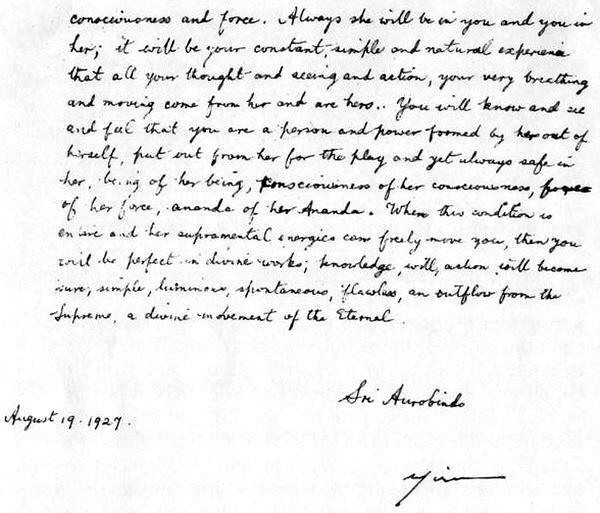 consciousness and force. Always she will be in you and you in
her; it will be your constant, simple and natural experience
that all your thought and seeing and action, your very breathing
and moving come from her and are hers.. You will know and see
and feel that you are a person and power formed by her out of
herself, put out from her for the play and yet always safe in
her, being of her being, consciousness of her consciousness, force
of her force, ananda of her Ananda. When this condition is
entire and her supramental energies can freely move you, then you
will be perfect in divine works; knowledge, will, action will become
sure, simple, luminous, spontaneous, flawless, an outflow from the
Supreme, a divine movement of the Eternal.
Sri Aurobindo
August 19. 1927.